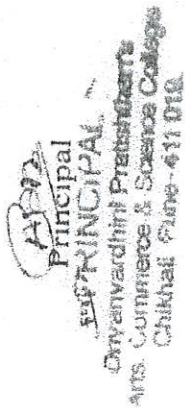 Principal
PRINCIPAL
Dnyanvardhini Pratishthan's
Arts, Commerce & Science College
Chikhali Pune-411 018